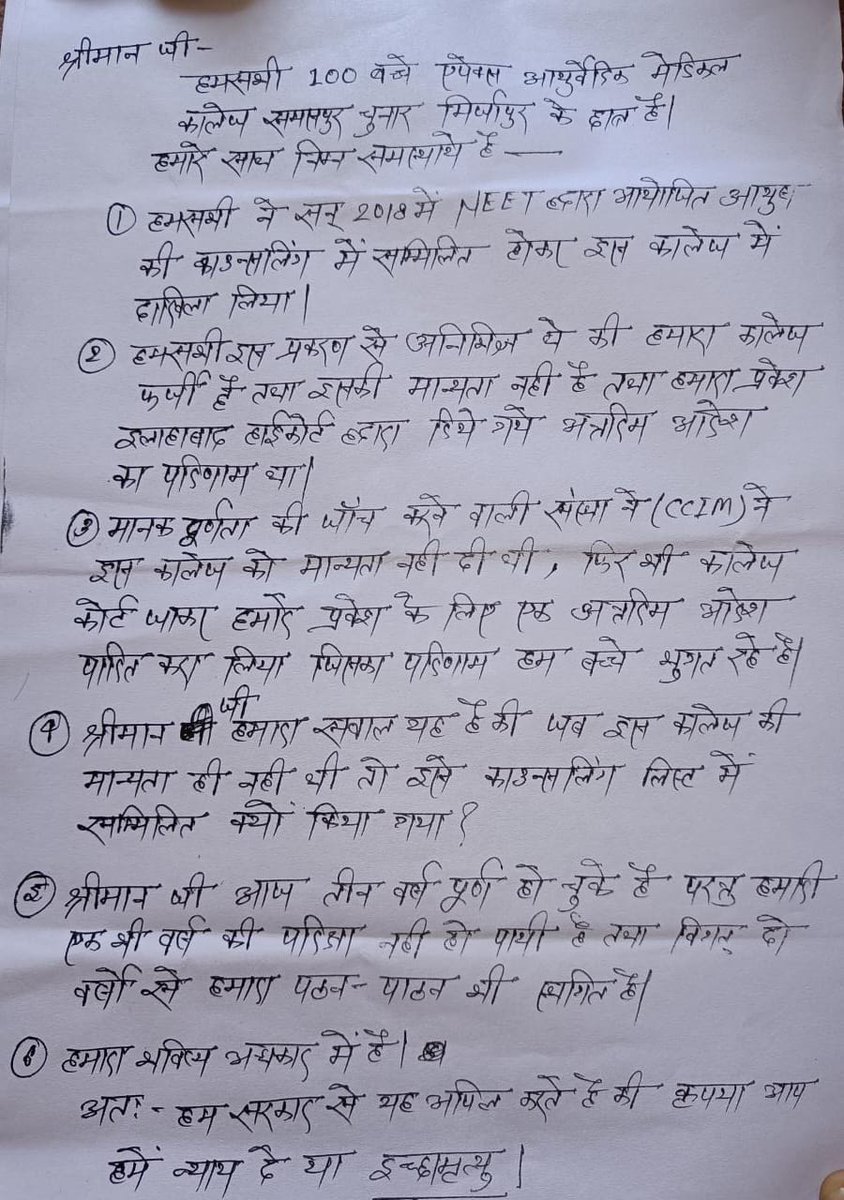 श्रीमान जी -
हमसभी 100 बच्चे एपेक्स आयुर्वेदिक मेडिकल
कालेज समसपुर चुनार मिर्जापुर के छात्र है।
हमारे साथ निम्न समस्याये है —
① हमसभी ने सन् 2018 में NEET द्वारा आयोजित आयुष
की काउन्सलिंग में सम्मिलित होकर इस कालेज में
दाखिला लिया।
② हमसभी इस प्रकरण से अनिभिज्ञ थे की हमारा कालेज
फर्जी है तथा इसकी मान्यता नही है तथा हमारा प्रवेश
इलाहाबाद हाईकोर्ट द्वारा दिये गये अन्तरिम आदेश
का परिणाम था।
③ मानक पूर्णता की जाँच करने वाली संस्था ने (CCIM) ने
इस कालेज को मान्यता नही दी थी, फिर भी कालेज
कोर्ट जाकर हमारे प्रवेश के लिए एक अन्तरिम आदेश
पारित करा लिया जिसका परिणाम हम बच्चे भुगत रहे है।
④ श्रीमान जी हमारा सवाल यह है की जब इस कालेज की
मान्यता ही नही थी तो इसे काउन्सलिंग लिस्ट में
सम्मिलित क्यों किया गया?
⑤ श्रीमान जी आज तीन वर्ष पूर्ण हो चुके है परन्तु हमारी
एक भी वर्ष की परिक्षा नही हो पायी है तथा विगत् दो
वर्षो से हमारा पठन-पाठन भी स्थगित है।
⑥ हमारा भविष्य अन्धकार में है।
अतः - हम सरकार से यह अपिल करते है की कृपया आप
हमें न्याय दे या इच्छामृत्यु।